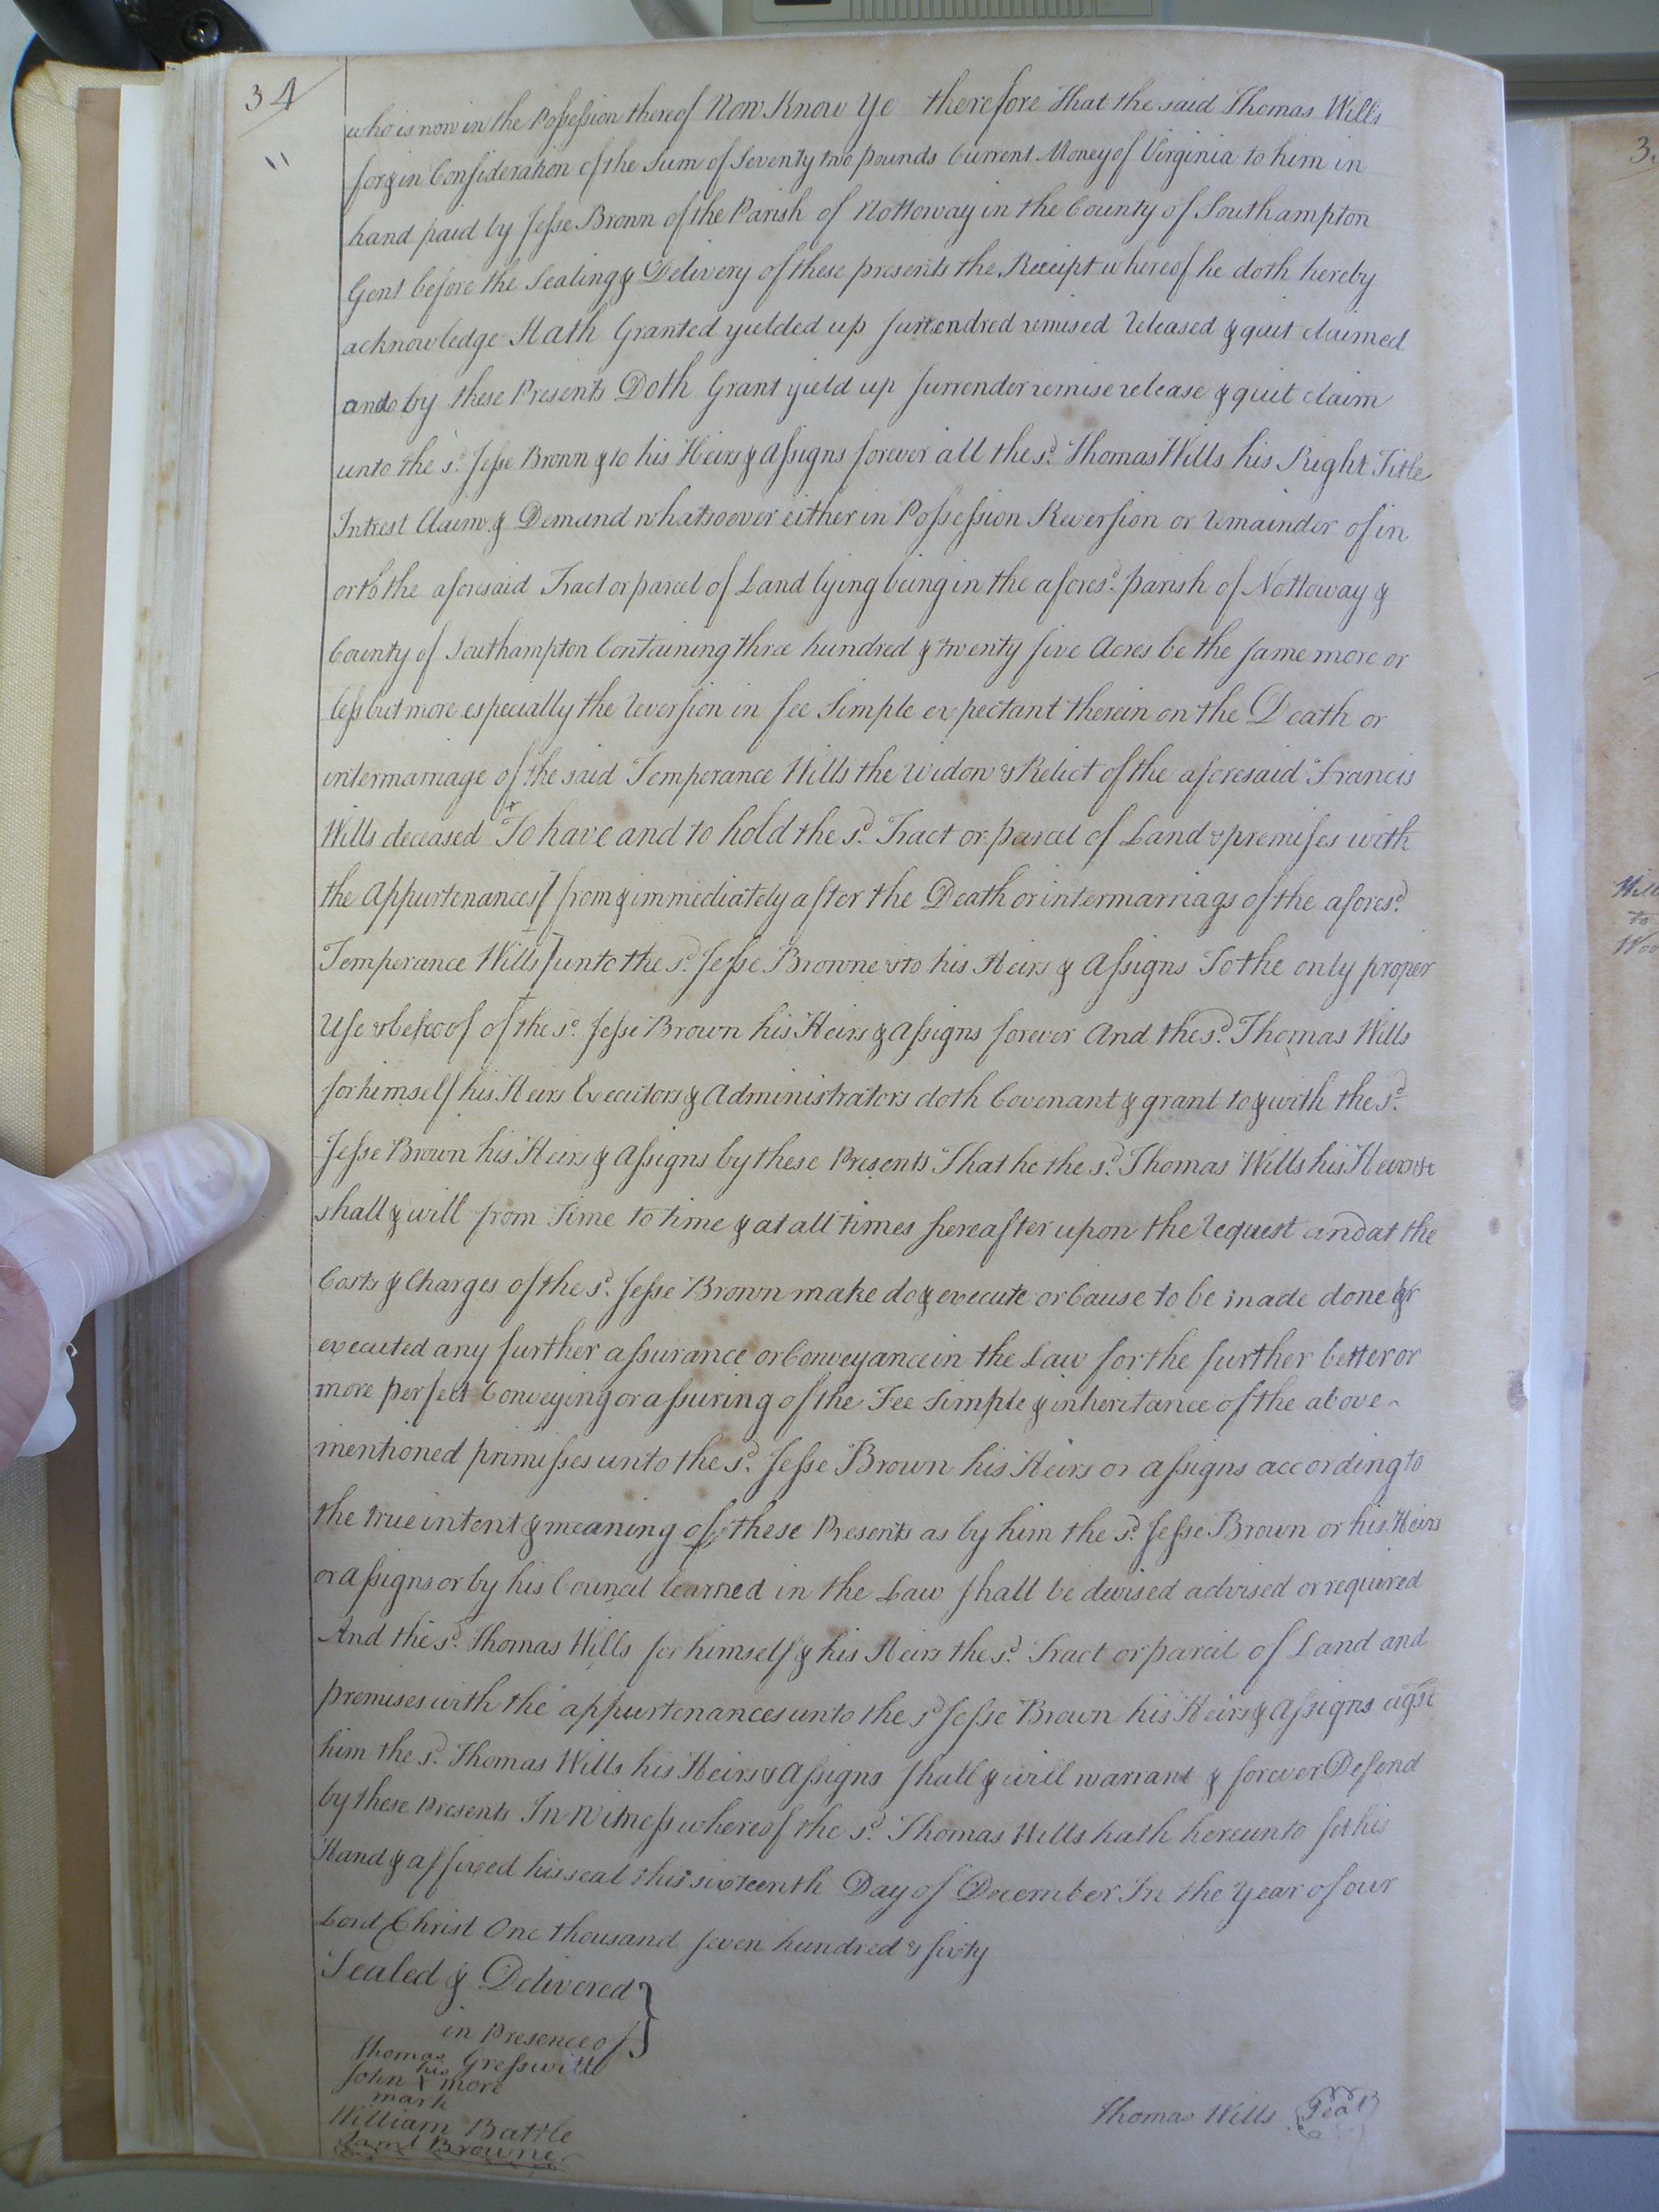 34
"
who is now in the Possession thereof Now Know Ye therefore That the said Thomas Wills
for & in Consideration of the Sum of Seventy two pounds Current Money of Virginia to him in
hand paid by Jesse Brown of the Parish of Nottoway in the County of Southampton
Gent before the Sealing & Delivery of these presents the Receipt whereof he doth hereby
acknowledge Hath Granted yielded up Surrendred remised Released & quit claimed
and by these Presents Doth Grant yield up Surrender remise release & quit claim
unto the sd. Jesse Brown & to his Heirs & Assigns forever all the sd. Thomas Wills his Right Title
Intrest Claim & Demand whatsoever either in Possession Reversion or Remainder of in
or to the aforesaid Tract or parcel of Land lying being in the aforesd. parish of Nottoway &
County of Southampton Containing three hundred & twenty five Acres be the same more or
less but more especially the Reversion in fee Simple expectant therein on the Death or
intermarriage of the said Temperance Wills the Widow & Relict of the aforesaid Francis
Wills deceased To have and to hold the sd. Tract or parcel of Land & premises with
the Appurtenances [from & immediately after the Death or intermarriags of the aforesd.
Temperance Wills] unto the sd. Jesse Browne & to his Heirs & Assigns To the only proper
Use & behoof of the sd. Jesse Brown his Heirs & Assigns forever And the sd. Thomas Wills
for himself his Heirs Executors & Administrators doth Covenant & grant to & with the sd.
Jesse Brown his Heirs & Assigns by these Presents That he the sd. Thomas Wills his Heirs
shall & will from Time to time & at all times hereafter upon the Request and at the
Costs & Charges of the sd. Jesse Brown make do & execute or Cause to be made done &
executed any further assurance or Conveyance in the Law for the further better or
more perfect Conveying or assuring of the Fee Simple & inheritance of the above
mentioned primisses unto the sd. Jesse Brown his Heirs or assigns according to
the true intent & meaning of these Presents as by him the sd. Jesse Brown or his Heirs
or assigns or by his Council learned in the Law shall be devised advised or required
And the sd. Thomas Wills for himself & his Heirs the sd. Tract or parcel of Land and
premises with the appurtenances unto the sd Jesse Brown his Heirs & Assigns agst
him the sd. Thomas Wills his Heirs & Assigns shall & will warrant & forever Defend
by these Presents In Witness whereof the sd. Thomas Wills hath hereunto set his
Hand & affixed his seal this sixteenth Day of December In the Year of our
Lord Christ One thousand seven hundred & sixty
Sealed & Delivered }
in Presence of
Thomas Gresswitt
his
John X more
mark
William Battle
Saml Browne
Thomas Wills Seal
3
to